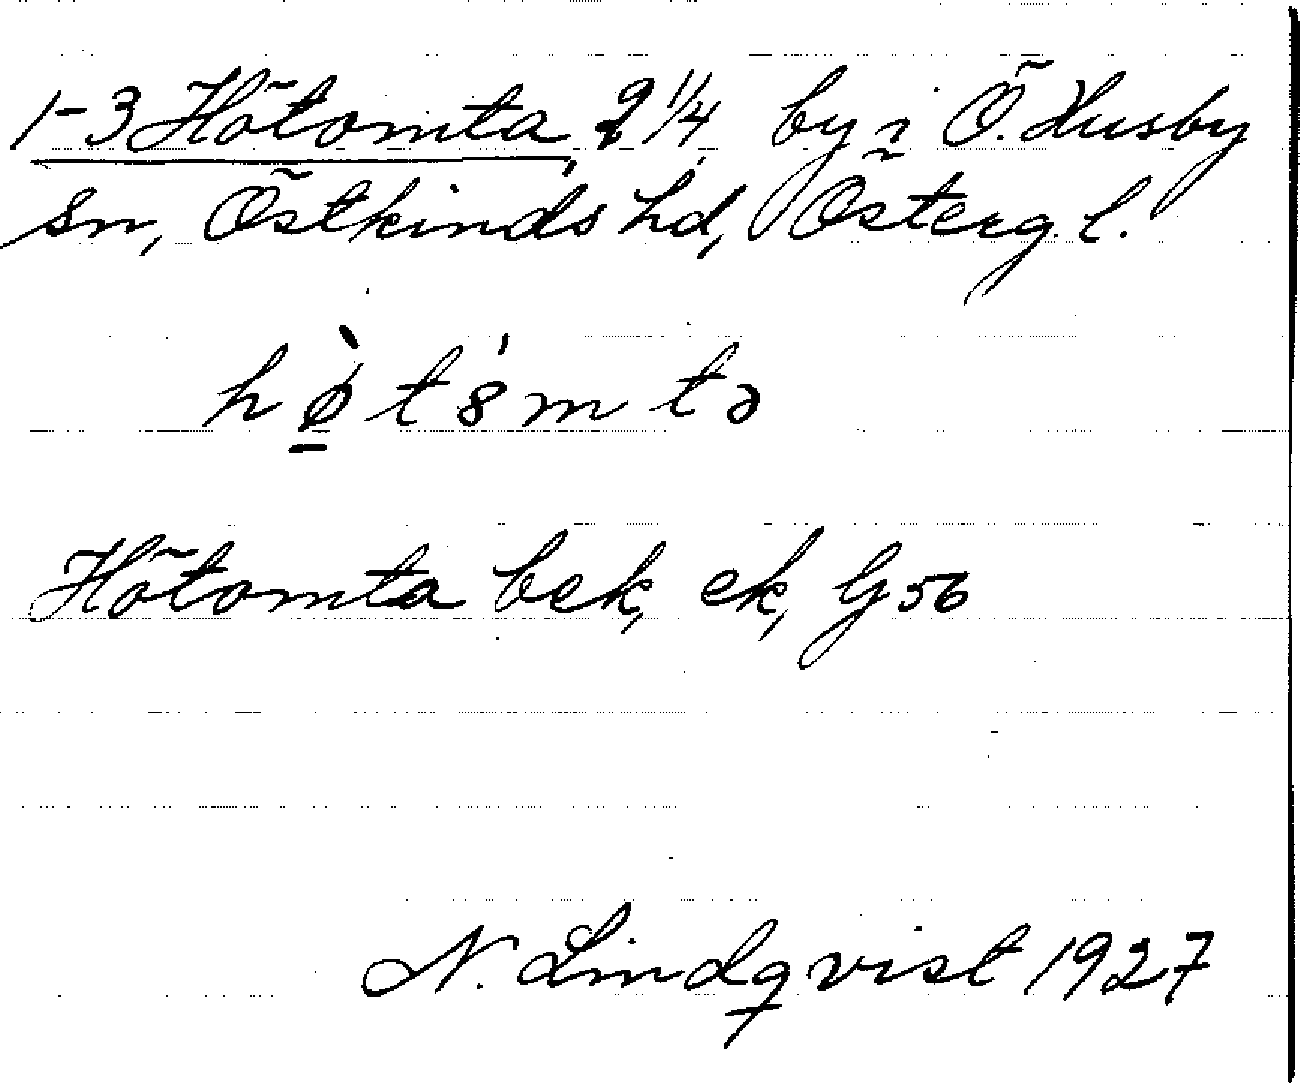 1-3 Hötomta, 2 1/4, by i Ö. Husby
sn, Östkinds hd, Österg. l.
hø̀tǿmtə
Hötomta bek, ek, G 56
N. Lindqvist 1927